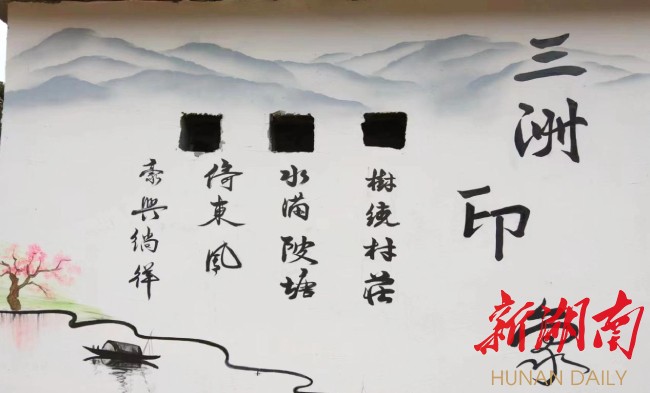 三洲印象
樹繞村莊
水满陂塘
倚東風
豪興徜徉
新湖南
HUNAN DAILY